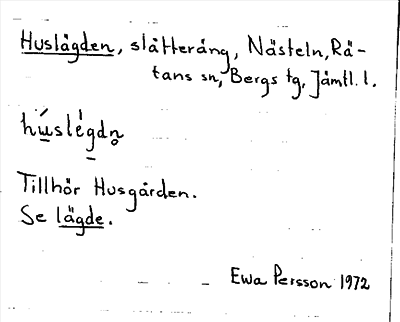 Huslägden, slåtteräng, Nästeln, Rä-
tans sn, Bergs tg, Jämtl. l.
húslégdn̥
Tillhör Husgården.
Se lägde.
Ewa Persson 1972